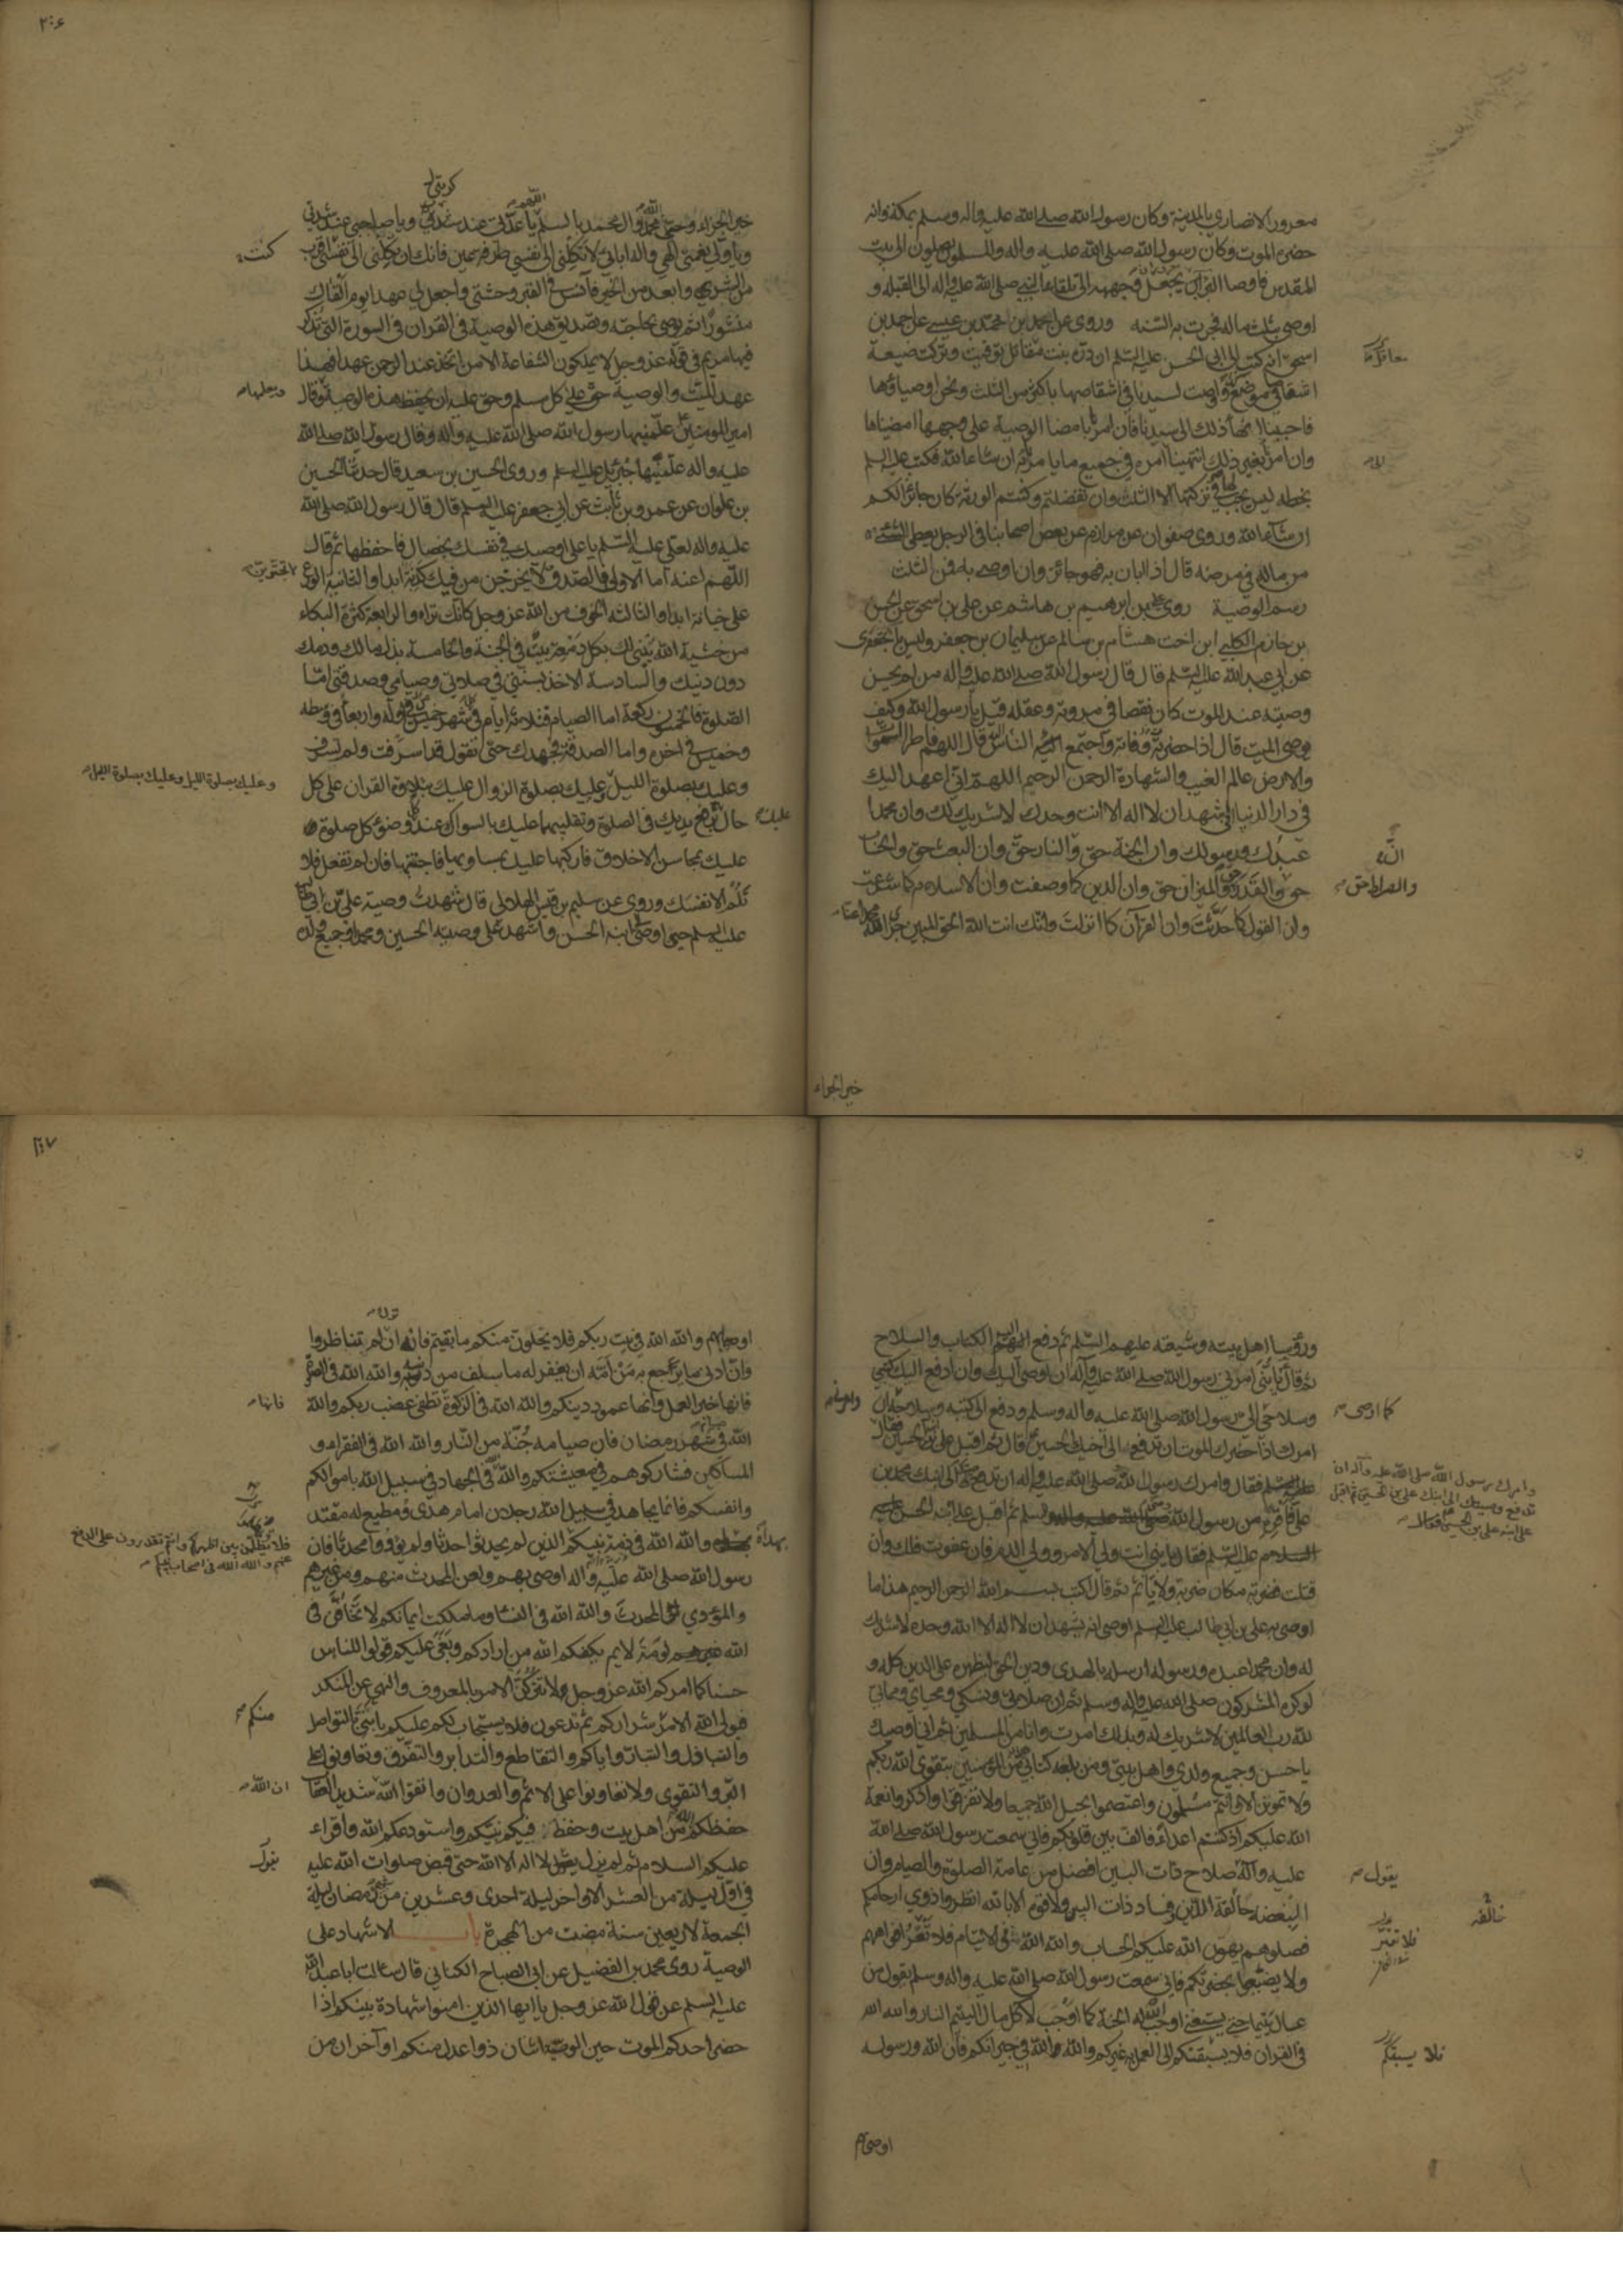 معرور الانصاري بالمدينة وكان رسول الله صلى الله عليه واله وسلم بمكة وانه
حضره الموت وكان رسول الله صلى الله عليه واله والمسلمون يصلون الى بيت
المقدس فاوصا اذا دفن يجعل وجهه الى تلقاء النبي صلى الله عليه واله الى القبلة و
اوصى بثلث ماله فجرت به السنه وروى عن احمد بن محمد بن عيسى عن احمد بن
اسحق انه كتب الى ابي الحسن عليه السلم ان درة بنت مقاتل توفيت وتركت ضيعة
اشقاصا في موضع واوصت لسيدنا في اشقاصها باكثر من الثلث ونحن اوصياؤها
فاحببنا انهاء ذلك الى سيدنا فان امرنا بامضا الوصية على وجهها امضيناها
وان امر بغير ذلك انتهينا الى امره في جميع ما يامر به ان شاء الله فكتب عليه السلم
بخطه ليس يجب لها في تركتها الا الثلث وان تفضلتم وكنتم الورثة كان جائزا لكم
ان شاء الله وروى صفوان عن مرازم عن بعض اصحابنا في الرجل يعطي الشيء
من ماله في مرضه قال اذا ابان به فهو جائز وان اوصى به فمن الثلث
رسم الوصية روى علي بن ابرهيم بن هاشم عن علي بن اسحق عن الحسن
بن حازم الكلبي ابن اخت هشام بن سالم عن سليمان بن جعفر وليس بالجعفري
عن ابي عبد الله عليه السلم قال قال رسول الله صلى الله عليه واله من لم يحسن
وصيته عند الموت كان نقصا في مروته وعقله قيل يا رسول الله وكيف
يوصي الميت قال اذا حضرته وفاته واجتمع اليه الناس قال اللهم فاطر السموات
والارض عالم الغيب والشهادة الرحمن الرحيم اللهم اني اعهد اليك
في دار الدنيا اني اشهد ان لا اله الا انت وحدك لا شريك لك وان محمدا
عبدك ورسولك وان الجنة حق والنار حق وان البعث حق والحساب
حق والقدر والميزان حق وان الدين كما وصفت وان الاسلام كما شرعت
وان القول كما حدثت وان القرآن كما انزلت وانك انت الله الحق المبين جزى الله
والصراط حق
خير الجزاء
٢٠٦
خير الجزاء وحيى محمدا وال محمد بالسلم يا عدتي عند كربتي ويا صاحبي عند شدتي
ويا وليي نعمتي الهي واله ابائي لا تكلني الى نفسي طرفة عين فانك ان تكلني الى نفسي اقرب
من الشر وابعد من الخير فانس في القبر وحشتي واجعل لي عهدا يوم القاك
منشورا ثم يوصي بحاجته وتصديق هذه الوصية في القران في السورة التي تذكر
فيها مريم في قوله عز وجل لا يملكون الشفاعة الا من اتخذ عند الرحمن عهدا فهذا
عهد الميت والوصية حق على كل مسلم وحق عليه ان يحفظ هذه الوصية وقال
امير المومنين علمنيها رسول الله صلى الله عليه واله وقال رسول الله صلى الله
عليه واله علمنيها جبرئيل عليه السلم وروى الحسين بن سعيد قال حدثنا الحسين
بن علوان عن عمرو بن ثابت عن ابي جعفر عليه السلم قال قال رسول الله صلى الله
عليه واله لعلي عليه السلم يا علي اوصيك في نفسك بخصال فاحفظها ثم قال
اللهم اعنه اما الاولى فالصدق لا يخرجن من فيك كذبة ابدا والثانية الورع
على خيانة ابدا والثالثة الخوف من الله عز وجل كانك تراه والرابعة كثرة البكاء
من خشية الله يبنى لك بكل دمعة بيت في الجنة والخامسة بذل مالك ودمك
دون دينك والسادسة الاخذ بسنتي في صلاتي وصيامي وصدقتي اما
الصلوة فالخمسون ركعة اما الصيام فثلاثة ايام في كل شهر خميس في اوله واربعا في وسطه
وخميس في اخره واما الصدقة فجهدك حتى تقول قد اسرفت ولم تسرف
وعليك بصلوة الليل وعليك بصلوة الزوال عليك بتلاوة القران على كل
حال برفع يديك في الصلوة وتقليبهما عليك بالسواك عند وضوء كل صلوة
عليك بمحاسن الاخلاق فاركبها عليك بمساويها فاجتنبها فان لم تفعل فلا
تلم الا نفسك وروى عن سليم بن قيس الهلالي قال شهدت وصية علي بن ابي طالب
عليه السلم حين اوصى ابنه الحسن واشهد على وصيته الحسين ومحمدا وجميع ولده
وعليك بصلوة الليل وعليك بصلوة الليل
ورؤسا اهل بيته وشيعته عليهم السلم ثم دفع اليه الكتاب والسلاح
ثم قال يا بني امرني رسول الله صلى الله عليه واله ان اوصي اليك وان ادفع اليك كتبي
وسلاحي كما اوصى الي رسول الله صلى الله عليه واله وسلم ودفع الي كتبه وسلاحه وان
امرك اذا حضرك الموت ان تدفعه الى اخيك الحسين قال ثم اقبل على ابنه الحسين فقال
وامرك رسول الله صلى الله عليه وآله ان
تدفع وصيتك الى ابنك علي بن الحسين ثم اقبل
على ابنه علي بن الحسين فقال
فقال وامرك رسول الله صلى الله عليه واله ان تدفع الى ابنك محمد بن
علي فاقره من رسول الله ومني السلم ثم اقبل على ابنه الحسن
عليه السلم فقال يا بني انت ولي الامر وولي الدم فان عفوت فلك وان
قتلت فضربة مكان ضربة ولا تاثم ثم قال اكتب بسم الله الرحمن الرحيم هذا ما
اوصى به علي بن ابي طالب عليه السلم اوصى انه يشهد ان لا اله الا الله وحده لا شريك
له وان محمدا عبده ورسوله ارسله بالهدى ودين الحق ليظهره على الدين كله و
لو كره المشركون صلى الله عليه واله وسلم ثم ان صلاتي ونسكي ومحياي ومماتي
لله رب العالمين لا شريك له وبذلك امرت وانا من المسلمين ثم اني اوصيك
يا حسن وجميع ولدي واهل بيتي ومن بلغه كتابي من المؤمنين بتقوى الله ربكم
ولا تموتن الا وانتم مسلمون واعتصموا بحبل الله جميعا ولا تفرقوا واذكروا نعمة
الله عليكم اذ كنتم اعداء فالف بين قلوبكم فاني سمعت رسول الله صلى الله
عليه واله صلاح ذات البين افضل من عامة الصلوة والصيام وان
يقول
البغضة حالقة الدين وفساد ذات البين ولا قوة الا بالله انظروا ذوي ارحامكم
فصلوهم يهون الله عليكم الحساب والله الله في الايتام فلا تغيروا افواههم
ولا يضيعوا بحضرتكم فاني سمعت رسول الله صلى الله عليه واله وسلم يقول من
عال يتيما حتى يستغني اوجب الله له الجنة كما اوجب لاكل مال اليتيم النار والله الله
في القران فلا يسبقنكم الى العمل به غيركم والله الله في جيرانكم فان الله ورسوله
اوصيا بهم
٢٠٧
اوصيا بهم والله الله في بيت ربكم فلا يخلون منكم ما بقيتم فانه ان لم تناظروا
وان ادنى ما يرجع به من امه ان يغفر له ما سلف من ذنبه والله الله في الصلوة
فانها خير العمل وانها عمود دينكم والله الله في الزكوة تطفئ غضب ربكم والله
فانها
الله في شهر رمضان فان صيامه جنة من النار والله الله في الفقراء و
المساكين فشاركوهم في معيشتكم والله الله في الجهاد في سبيل الله باموالكم
وانفسكم فانما يجاهد في سبيل الله رجلان امام هدى ومطيع له مقتد
بهداه والله الله في ذرية نبيكم الذين لم يحدثوا حدثا ولم يؤووا محدثا فان
فلا تظلمن بين اظهركم وانتم تقدرون على الدفع
عنهم والله الله في اصحاب نبيكم
رسول الله صلى الله عليه واله اوصى بهم ولعن المحدث منهم ومن غيرهم
والمؤوي للمحدث والله الله في النساء وما ملكت ايمانكم لا تخافن في
الله لومة لائم يكفكم الله من ارادكم وبغى عليكم قولوا للناس
حسنا كما امركم الله عز وجل ولا تتركن الامر بالمعروف والنهي عن المنكر
فيولي الله الامر شراركم ثم تدعون فلا يستجاب لكم عليكم يا بني بالتواصل
منكم
والتباذل والتبار واياكم والتقاطع والتدابر والتفرق وتعاونوا على
البر والتقوى ولا تعاونوا على الاثم والعدوان واتقوا الله شديد العقاب
ان الله
حفظكم الله من اهل بيت وحفظ فيكم نبيكم واستودعكم الله واقراء
عليكم السلام ثم لم يزل يقول لا اله الا الله حتى قبض صلوات الله عليه
يقول
في اول ليلة من العشر الاواخر ليلة احدى وعشرين من شهر رمضان ليلة
الجمعة لاربعين سنة مضت من الهجرة باب الاشهاد على
الوصية روى محمد بن الفضيل عن ابي الصباح الكناني قال سالت ابا عبد الله
عليه السلم عن قول الله عز وجل يا ايها الذين امنوا شهادة بينكم اذا
حضر احدكم الموت حين الوصية اثنان ذوا عدل منكم او آخران من